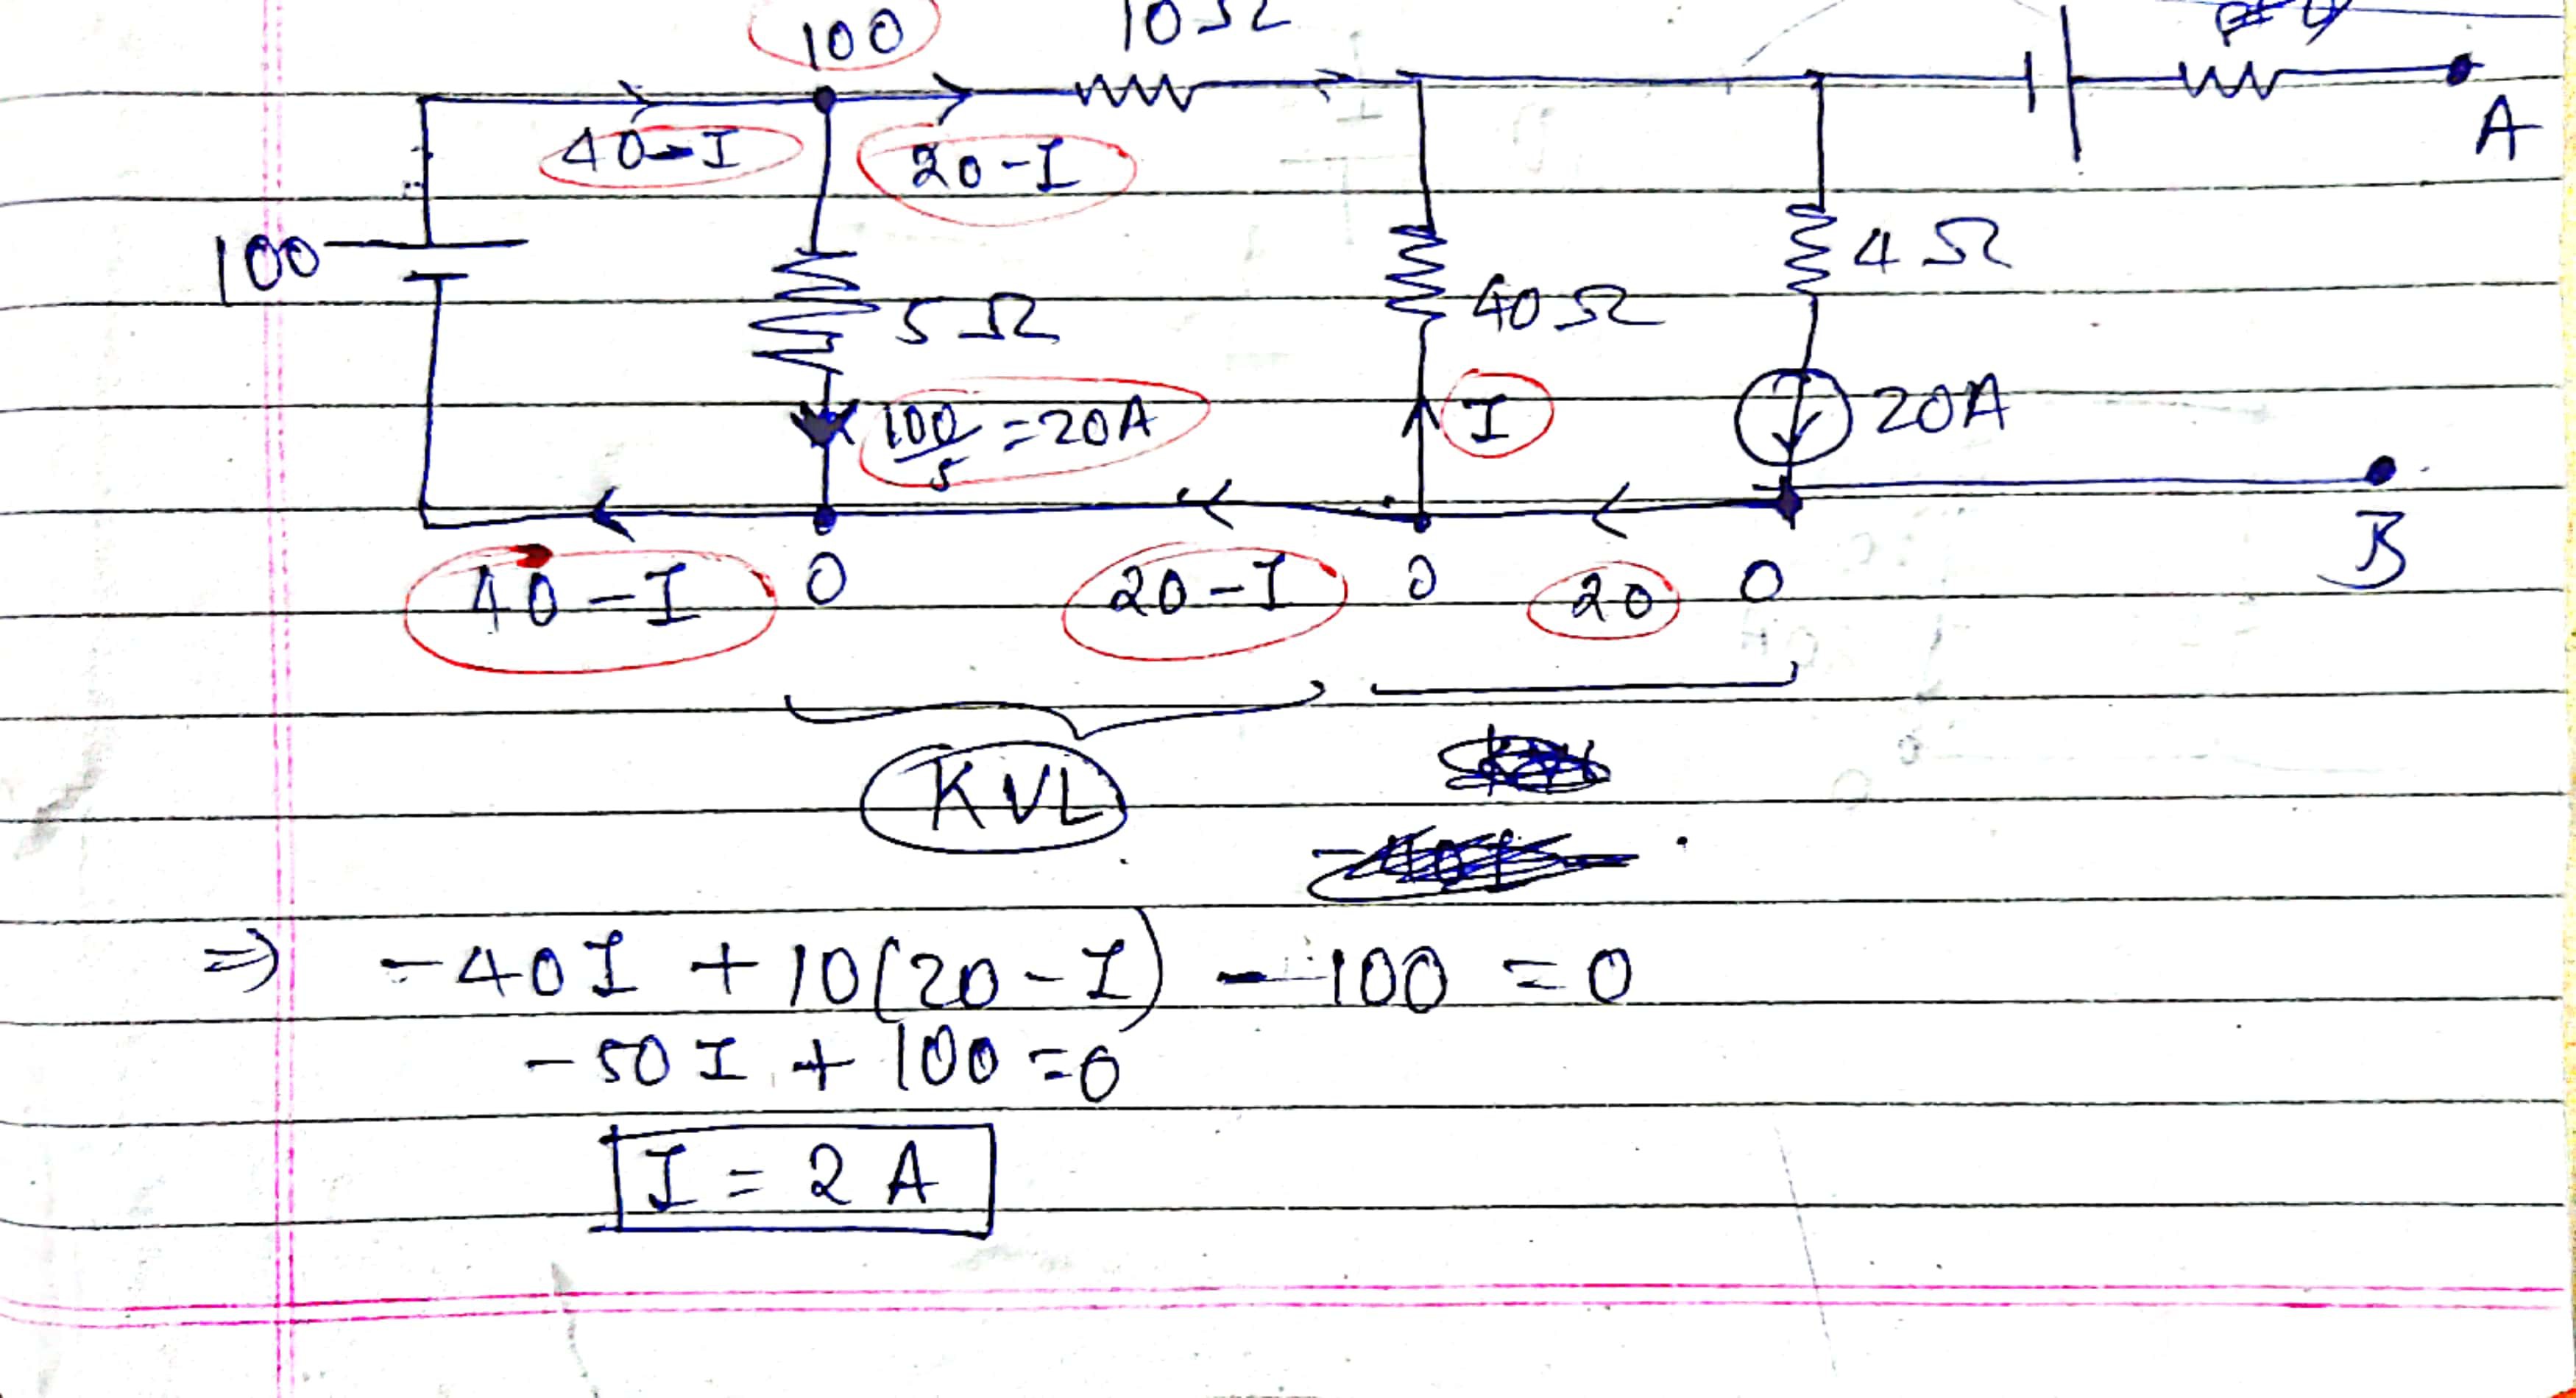 100 10Ω
40-I 20-I A
100 4Ω
5Ω 40Ω
100/5 = 20A I 20A
B
40-I 0 20-I 0 20 0
KVL
⇒ -40I + 10(20-I) - 100 = 0
-50I + 100 = 0
I = 2 A